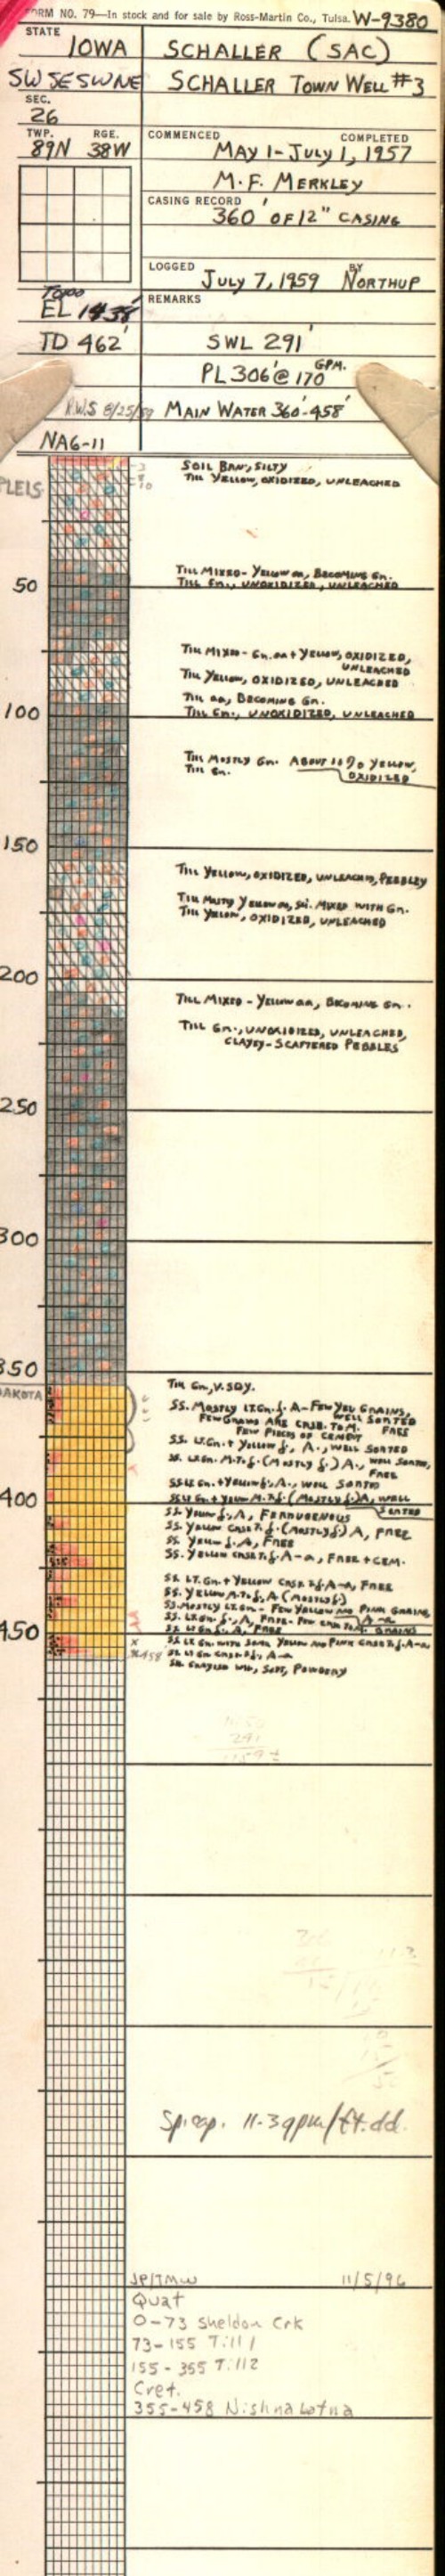 FORM NO. 79—In stock and for sale by Ross-Martin Co., Tulsa. W-9380
STATE
IOWA
SCHALLER (SAC)
SW SE SW NE
SCHALLER TOWN WELL #3
SEC.
26
TWP. RGE.
89N 38W
COMMENCED COMPLETED
MAY 1 - JULY 1, 1957
M. F. MERKLEY
CASING RECORD
360' OF 12" CASING
LOGGED BY
JULY 7, 1959 NORTHUP
Topo
EL
REMARKS
TD 462'
SWL 291'
PL 306' @ 170 GPM.
R.W.S 8/25/59
MAIN WATER 360'-458'
NA6-11
PLEIS.
SOIL BRN, SILTY
TILL YELLOW, OXIDIZED, UNLEACHED
TILL MIXED - YELLOW AA, BECOMING GN.
50
TILL GN., UNOXIDIZED, UNLEACHED
TILL MIXED - GN. AA + YELLOW, OXIDIZED,
UNLEACHED
TILL YELLOW, OXIDIZED, UNLEACHED
TILL AA, BECOMING GN.
100
TILL GN., UNOXIDIZED, UNLEACHED
TILL MOSTLY GN. ABOUT 10% YELLOW,
OXIDIZED
TILL GN.
150
TILL YELLOW, OXIDIZED, UNLEACHED, PEBBLEY
TILL MOSTLY YELLOW AA, SLI. MIXED WITH GN.
TILL YELLOW, OXIDIZED, UNLEACHED
200
TILL MIXED - YELLOW AA, BECOMING GN.
TILL GN., UNOXIDIZED, UNLEACHED,
CLAYEY - SCATTERED PEBBLES
250
300
350
DAKOTA
TILL GN., V. SDY.
SS. MOSTLY LT. GN. f. A - FEW YEL GRAINS,
WELL SORTED
FEW GRAINS ARE CRSE. TO M. FREE
FEW PIECES OF CEMENT
SS. LT. GN. + YELLOW f., A., WELL SORTED
SS. LT. GN. M. T. f. (MOSTLY f.) A., WELL SORTED,
FREE
SS. LT. GN. + YELLOW f., A., WELL SORTED
400
SS. LT. GN. + YELLOW M. T. f. (MOSTLY f.) A, WELL
SORTED
SS. YELLOW f., A, FERRUGENOUS
SS. YELLOW CRSE T. f. (MOSTLY f.) A, FREE
SS. YELLOW f. A, FREE
SS. YELLOW CRSE T. f. A-a, FREE + CEM.
SS. LT. GN. + YELLOW CRSE T. f. A-a, FREE
SS. YELLOW M. T. f. A (MOSTLY f.)
SS. MOSTLY LT. GN. - FEW YELLOW AND PINK GRAINS,
A-a
SS. LT. GN. f., A, FREE. FEW CRSE TO M. GRAINS
450
SS. LT GN f., A, FREE
SS LT GN. WITH SOME YELLOW AND PINK CRSE T. f. A-a
458
SS LT GN CRSE T. f., A-a
SOFT, POWDERY
291
Sp. cap. 11.3 gpm/ft. dd.
JP/TMW 11/5/96
Quat
0-73 Sheldon Crk
73-155 Till 1
155-355 Till 2
Cret.
355-458 Nishnabotna